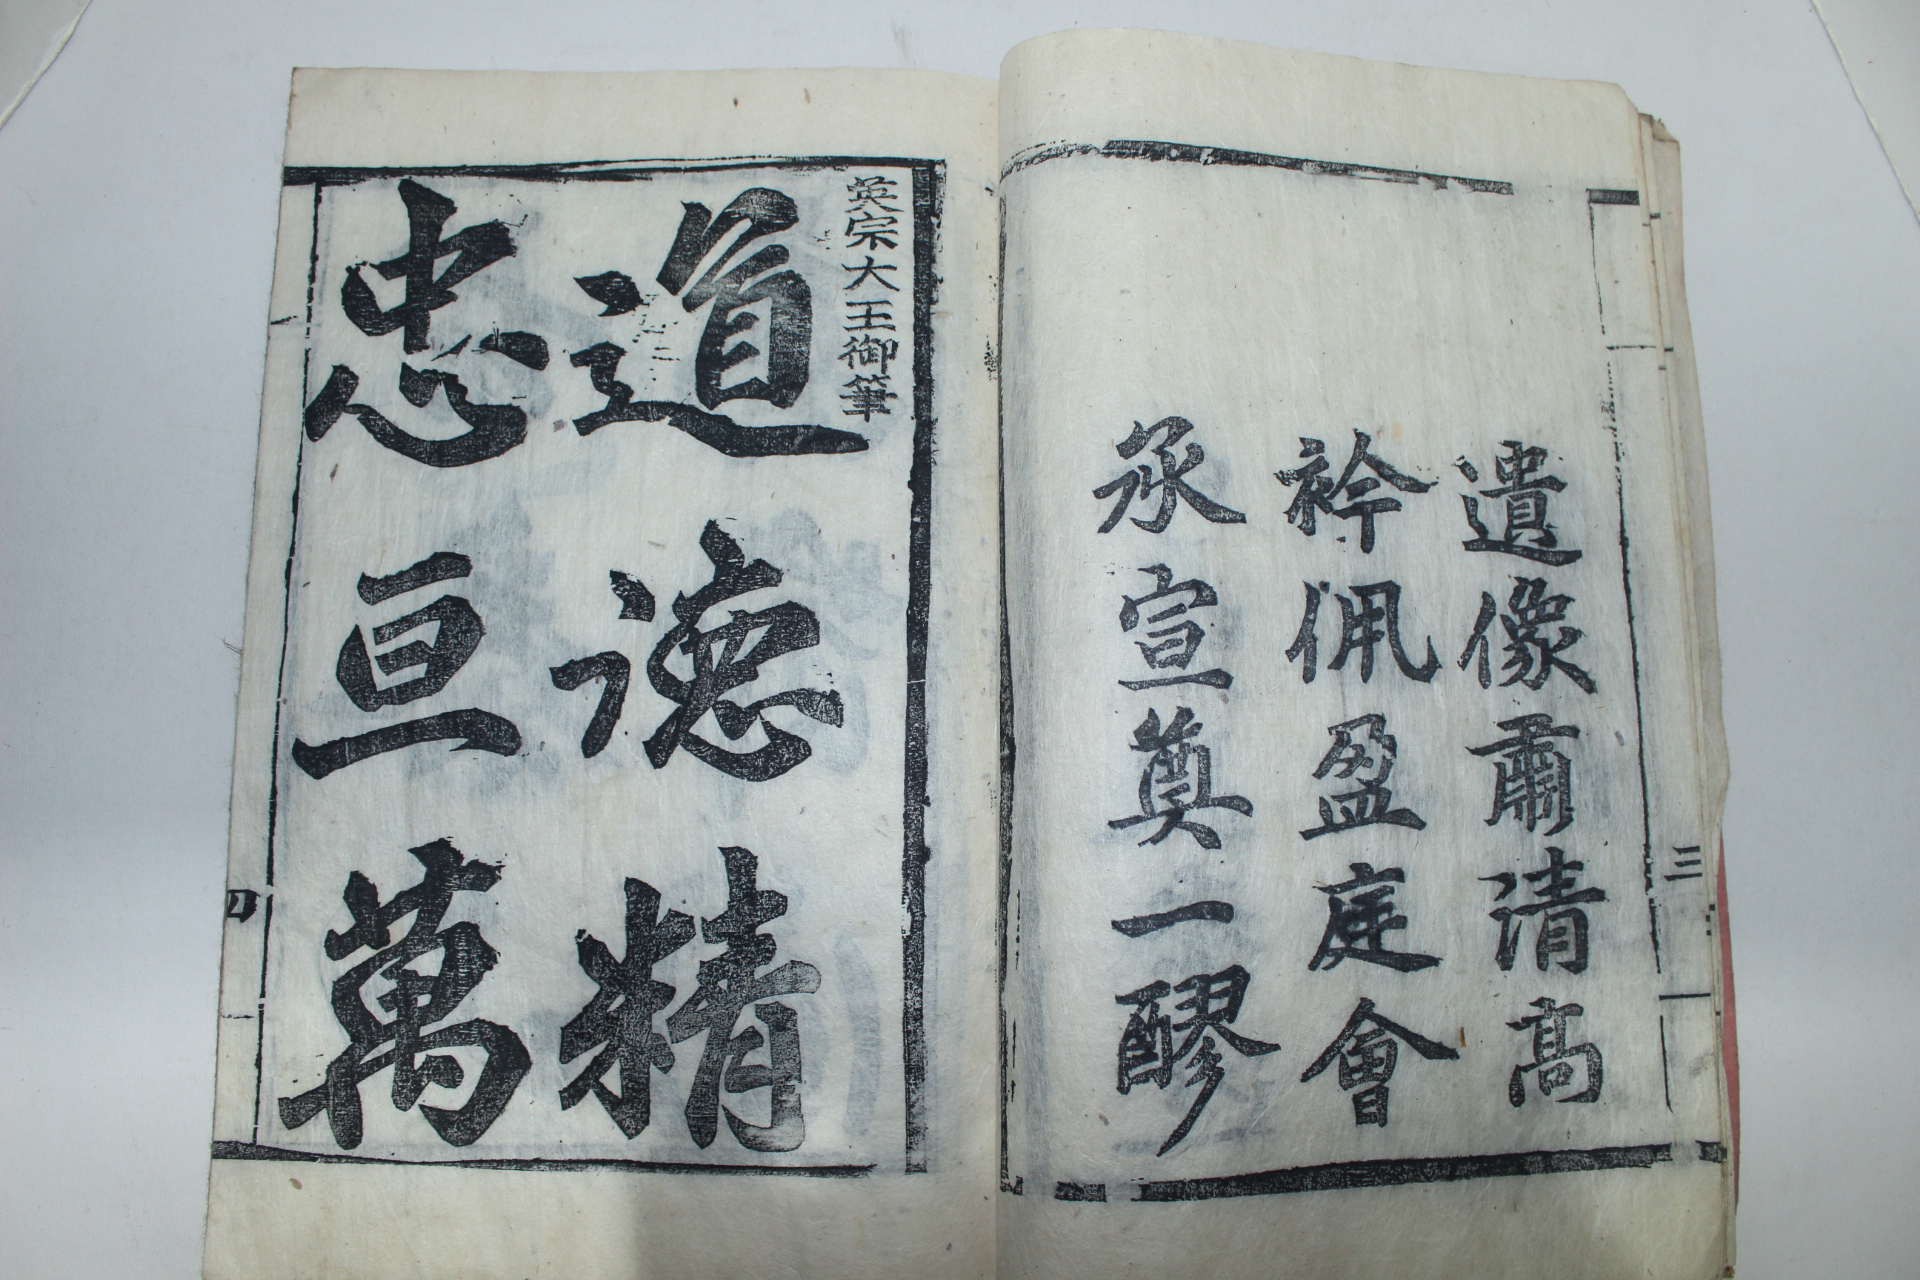 三
遺像肅清高
衿佩盈庭會
承宣奠一醪
英宗大王御筆
道德精
忠亘萬
四